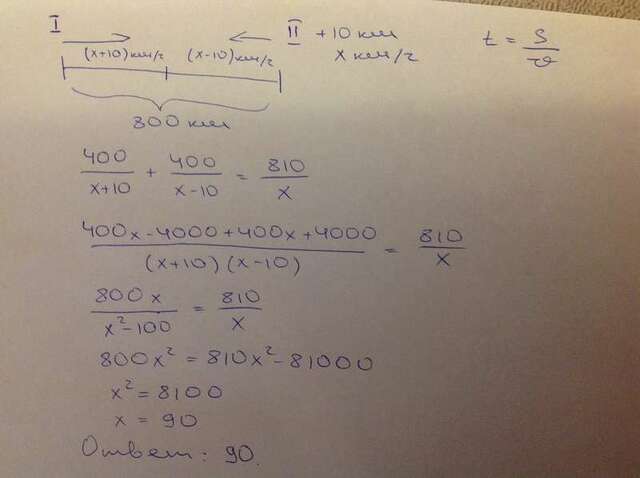 I II +10 км t = S/v
(x+10) км/ч (x-10) км/ч x км/ч
800 км
400/(x+10) + 400/(x-10) = 810/x
(400x-4000+400x+4000)/((x+10)(x-10)) = 810/x
800x/(x²-100) = 810/x
800x² = 810x²-81000
x² = 8100
x = 90
Ответ: 90.